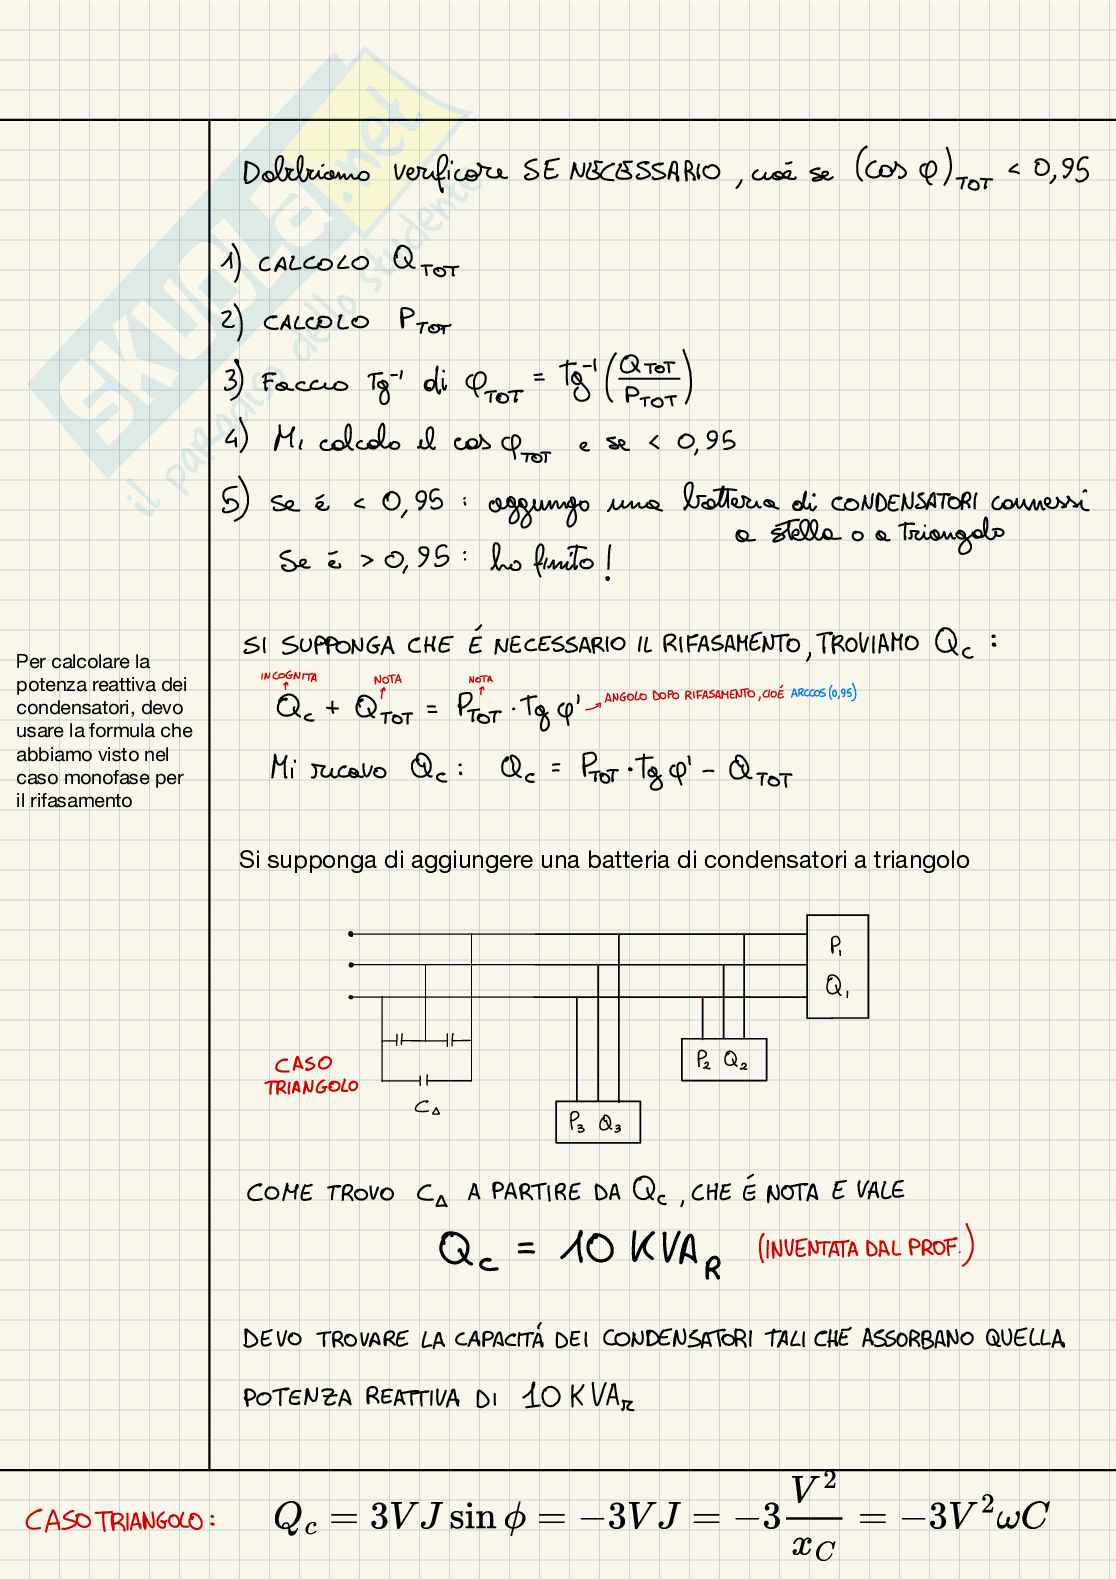 SKUOLA.net
il paradiso dello studente
Dobbiamo verificare SE NECESSARIO, cioé se (cos φ)TOT < 0,95
1) CALCOLO QTOT
2) CALCOLO PTOT
3) Faccio Tg⁻¹ di φTOT = Tg⁻¹(QTOT/PTOT)
4) Mi calcolo il cos φTOT e se < 0,95
5) Se é < 0,95 : aggiungo una batteria di CONDENSATORI connessi
a stella o a Triangolo
Se é > 0,95 : ho finito!
SI SUPPONGA CHE É NECESSARIO IL RIFASAMENTO, TROVIAMO Qc :
Per calcolare la
potenza reattiva dei
condensatori, devo
usare la formula che
abbiamo visto nel
caso monofase per
il rifasamento
INCOGNITA NOTA NOTA
Qc + QTOT = PTOT · Tg φ' → ANGOLO DOPO RIFASAMENTO, CIOÉ ARCCOS(0,95)
Mi ricavo Qc : Qc = PTOT · Tg φ' − QTOT
Si supponga di aggiungere una batteria di condensatori a triangolo
P1
Q1
P2 Q2
CASO
TRIANGOLO
CΔ
P3 Q3
COME TROVO CΔ A PARTIRE DA Qc, CHE É NOTA E VALE
Qc = 10 KVAR (INVENTATA DAL PROF.)
DEVO TROVARE LA CAPACITÁ DEI CONDENSATORI TALI CHE ASSORBANO QUELLA
POTENZA REATTIVA DI 10 KVAR
CASO TRIANGOLO : Qc = 3VJ sin ϕ = −3VJ = −3 V²/xC = −3V²ωC